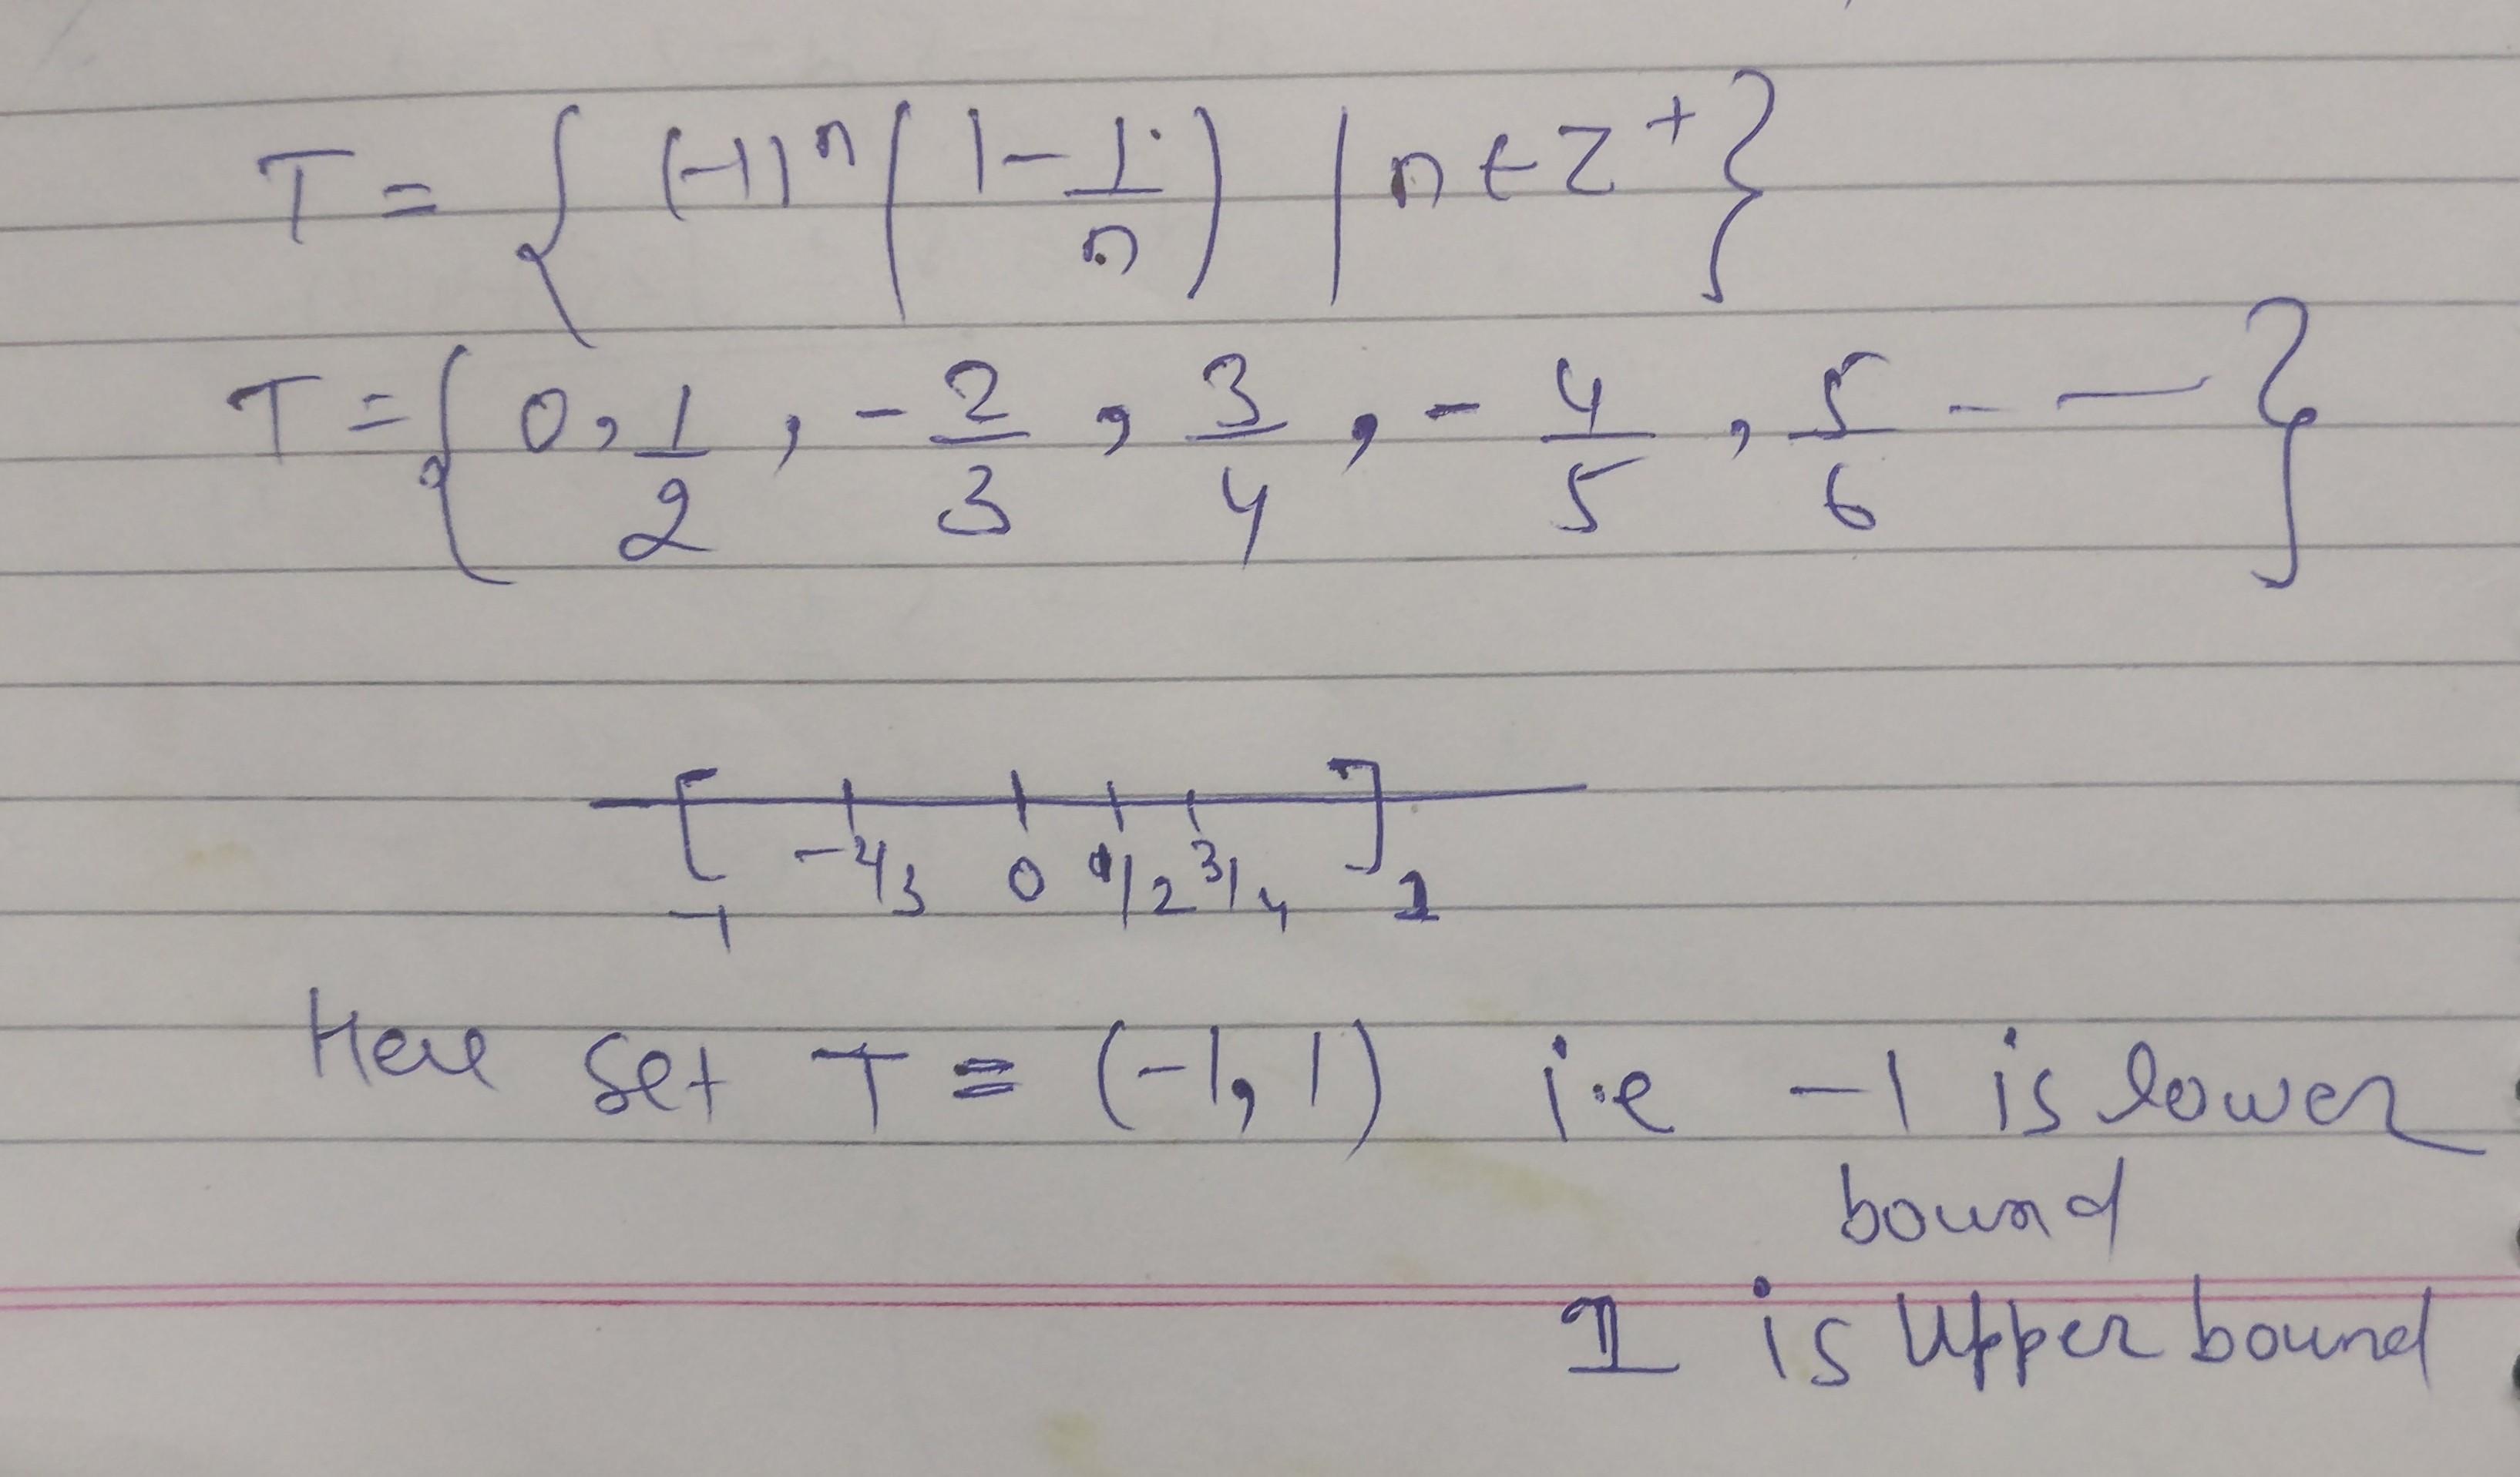 T = { (-1)ⁿ (1 - 1/n) | n ∈ Z⁺ }
T = { 0, 1/2, -2/3, 3/4, -4/5, 5/6 - — }
[ -4/3 0 1/2 3/4 ]
-1 1
Here Set T = (-1, 1) i.e -1 is lower
bound
1 is Upper bound